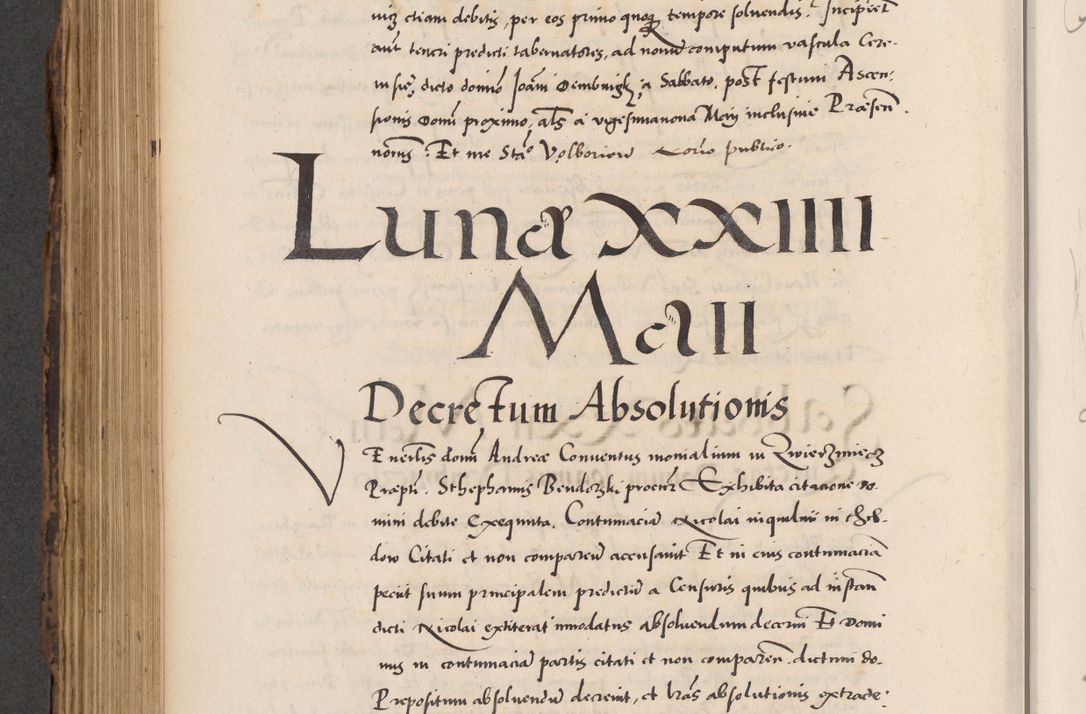 niż etiam debitis, per eos primo quoq tempore solvendis. Incipient
aut teneri predicti tabernatores, ad nonum computum vascula Cere-
, dicto domino Joan̄ Dembnigk, a Sabbato, post festum Ascen:
sionis Domī proximo, als a vigesimanona Maij inclusive Præsen̄
: Et me Publico.
Lunæ XXIIII
Maii
Decretum Absolutionis
Venerlis domī Andreæ Conventus monialium in Zwierziniecz
Præpti. Sthephanus Bendozki procur Exhibita citatione do
mini debite Exequuta, Contumaciā Nicolai niquilnii in Chob-
dow Citati et non comparen̄ accusavit Et in eius contumaciā
peciit suum principalem predictū a Censuris quibus ad instan̄
dicti Nicolai extiterat innodatus absolvendum decerni Et Domi
nus in contumaciā partis citati et non comparen̄. dictum do.
Prepositum absolvendū decrevit, et lrās absolutionis extrade-